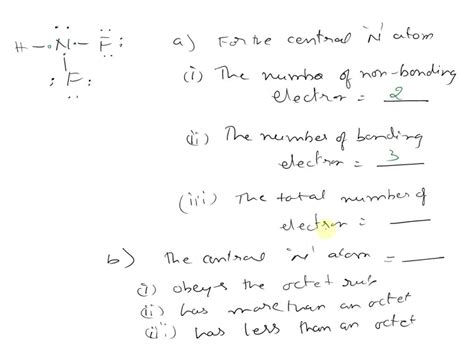 H - N - F:
:F:
a) For the central 'N' atom
(i) The number of non-bonding
electron = 2
(ii) The number of bonding
electron = 3
(iii) The total number of
electron = ___
b) The central 'N' atom = ___
(i) obeys the octet rule
(ii) has more than an octet
(iii) has less than an octet